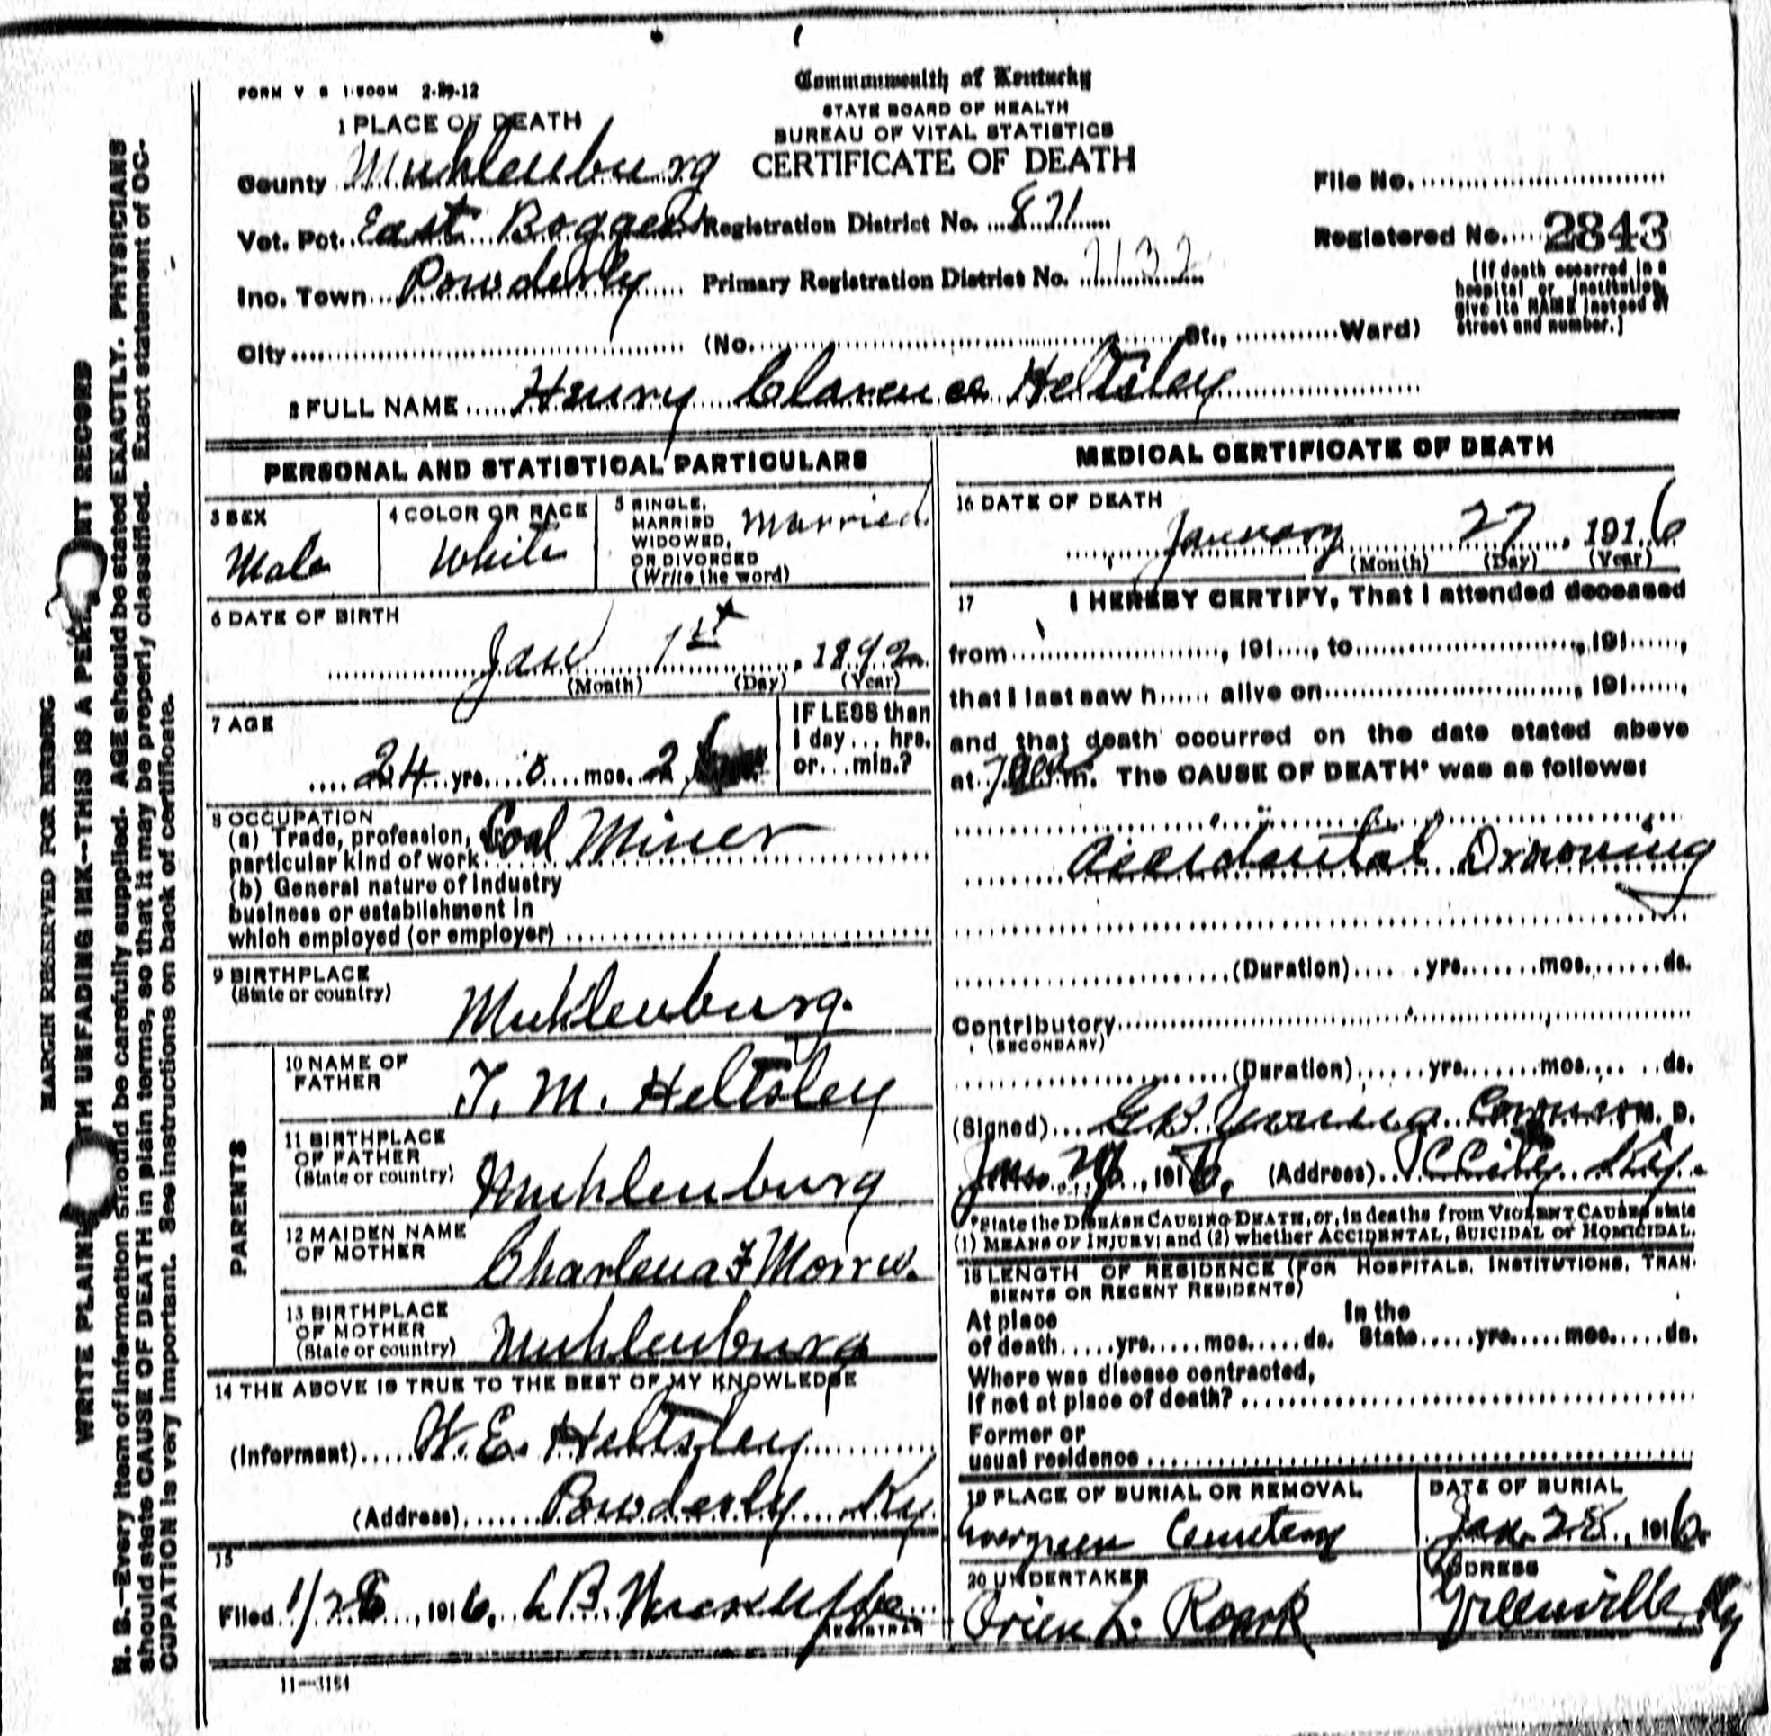 FORM V S 1-500M 2-29-12
Commonwealth of Kentucky
STATE BOARD OF HEALTH
BUREAU OF VITAL STATISTICS
CERTIFICATE OF DEATH
1 PLACE OF DEATH
County Muhlenburg
Vot. Pct. East Bogges Registration District No. 871
Inc. Town Powderly Primary Registration District No. 7132
City (No. St., Ward)
File No.
Registered No. 2843
(If death occurred in a
hospital or institution,
give its NAME instead of
street and number.)
2 FULL NAME Henry Clarence Heltsley
PERSONAL AND STATISTICAL PARTICULARS
3 SEX
Male
4 COLOR OR RACE
White
5 SINGLE,
MARRIED
WIDOWED,
OR DIVORCED
(Write the word)
Married
6 DATE OF BIRTH
Jan 1st, 1892
(Month) (Day) (Year)
7 AGE
24 yrs. 0 mos. 26
IF LESS than
1 day ... hrs.
or ... min.?
8 OCCUPATION
(a) Trade, profession,
particular kind of work Coal Miner
(b) General nature of industry
business or establishment in
which employed (or employer)
9 BIRTHPLACE
(State or country)
Muhlenburg.
PARENTS
10 NAME OF
FATHER
T. M. Heltsley
11 BIRTHPLACE
OF FATHER
(State or country)
Muhlenburg
12 MAIDEN NAME
OF MOTHER
Charlena F Morris.
13 BIRTHPLACE
OF MOTHER
(State or country)
Muhlenburg
14 THE ABOVE IS TRUE TO THE BEST OF MY KNOWLEDGE
(Informant) W. E. Heltsley
(Address) Powderly Ky.
15
Filed 1/28, 1916, L B
REGISTRAR
11—3184
MEDICAL CERTIFICATE OF DEATH
16 DATE OF DEATH
January 27, 1916
(Month) (Day) (Year)
17 I HEREBY CERTIFY, That I attended deceased
from , 191 , to , 191 ,
that I last saw h alive on , 191 ,
and that death occurred on the date stated above
at m. The CAUSE OF DEATH* was as follows:
Accidental Drowning
(Duration) yrs. mos. ds.
Contributory
(SECONDARY)
(Duration) yrs. mos. ds.
(Signed) Coroner M. D.
Jan. , 1916, (Address) City Ky.
*State the DISEASE CAUSING DEATH, or, in deaths from VIOLENT CAUSES state
(1) MEANS OF INJURY; and (2) whether ACCIDENTAL, SUICIDAL or HOMICIDAL.
18 LENGTH OF RESIDENCE (FOR HOSPITALS, INSTITUTIONS, TRAN-
SIENTS OR RECENT RESIDENTS)
At place In the
of death yrs. mos. ds. State yrs. mos. ds.
Where was disease contracted,
If not at place of death?
Former or
usual residence
19 PLACE OF BURIAL OR REMOVAL
Evergreen Cemetery
DATE OF BURIAL
Jan. 28, 1916.
20 UNDERTAKER
Orien L. Roark
ADDRESS
Greenville Ky
MARGIN RESERVED FOR BINDING
WRITE PLAINLY WITH UNFADING INK—THIS IS A PERMANENT RECORD
N. B.—Every item of information should be carefully supplied. AGE should be stated EXACTLY. PHYSICIANS
should state CAUSE OF DEATH in plain terms, so that it may be properly classified. Exact statement of OC-
CUPATION is very important. See instructions on back of certificate.